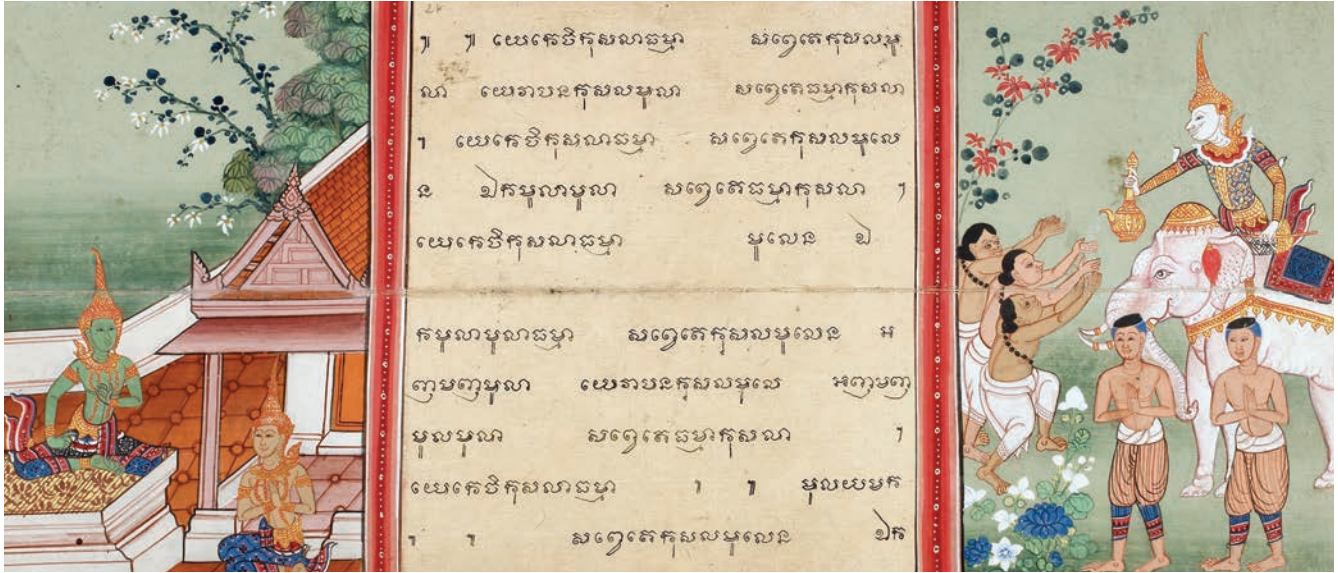 ៗ ៗ យេកេចិកុសលាធម្មា សព្វេតេកុសលមូ
លា យេវាបនកុសលមូលា សព្វេតេធម្មាកុសលា
ៗ យេកេចិកុសលាធម្មា សព្វេតេកុសលមូលេ
ន ឯកមូលាមូលា សព្វេតេធម្មាកុសលា ៗ
យេកេចិកុសលាធម្មា មូលេន ឯ
កមូលាមូលាធម្មា សព្វេតេកុសលមូលេន អ
ញមញមូលា យេវាបនកុសលមូលេ អញមញ
មូលមូលា សព្វេតេធម្មាកុសលា ៗ
យេកេចិកុសលាធម្មា ៗ ៗ មូលយមក
ៗ ៗ សព្វេតេកុសលមូលេន ឯក